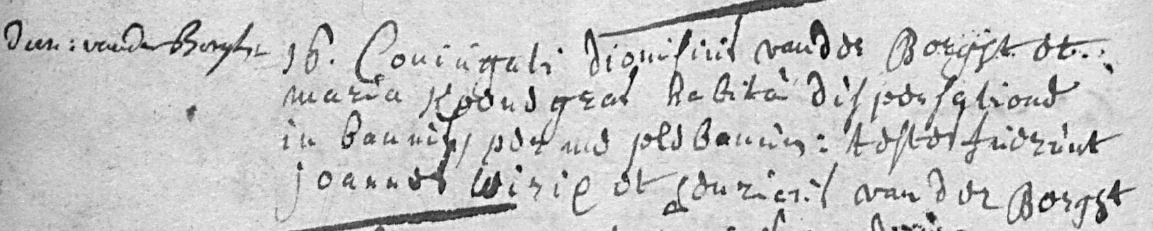 Dion: vander Borght
16. Coniugati dionisius vander Borght et
maria spousgras habita dispensatione
in bannis, per me plebanum: testes fuerunt
joannes Wirix et henricus vander Borght